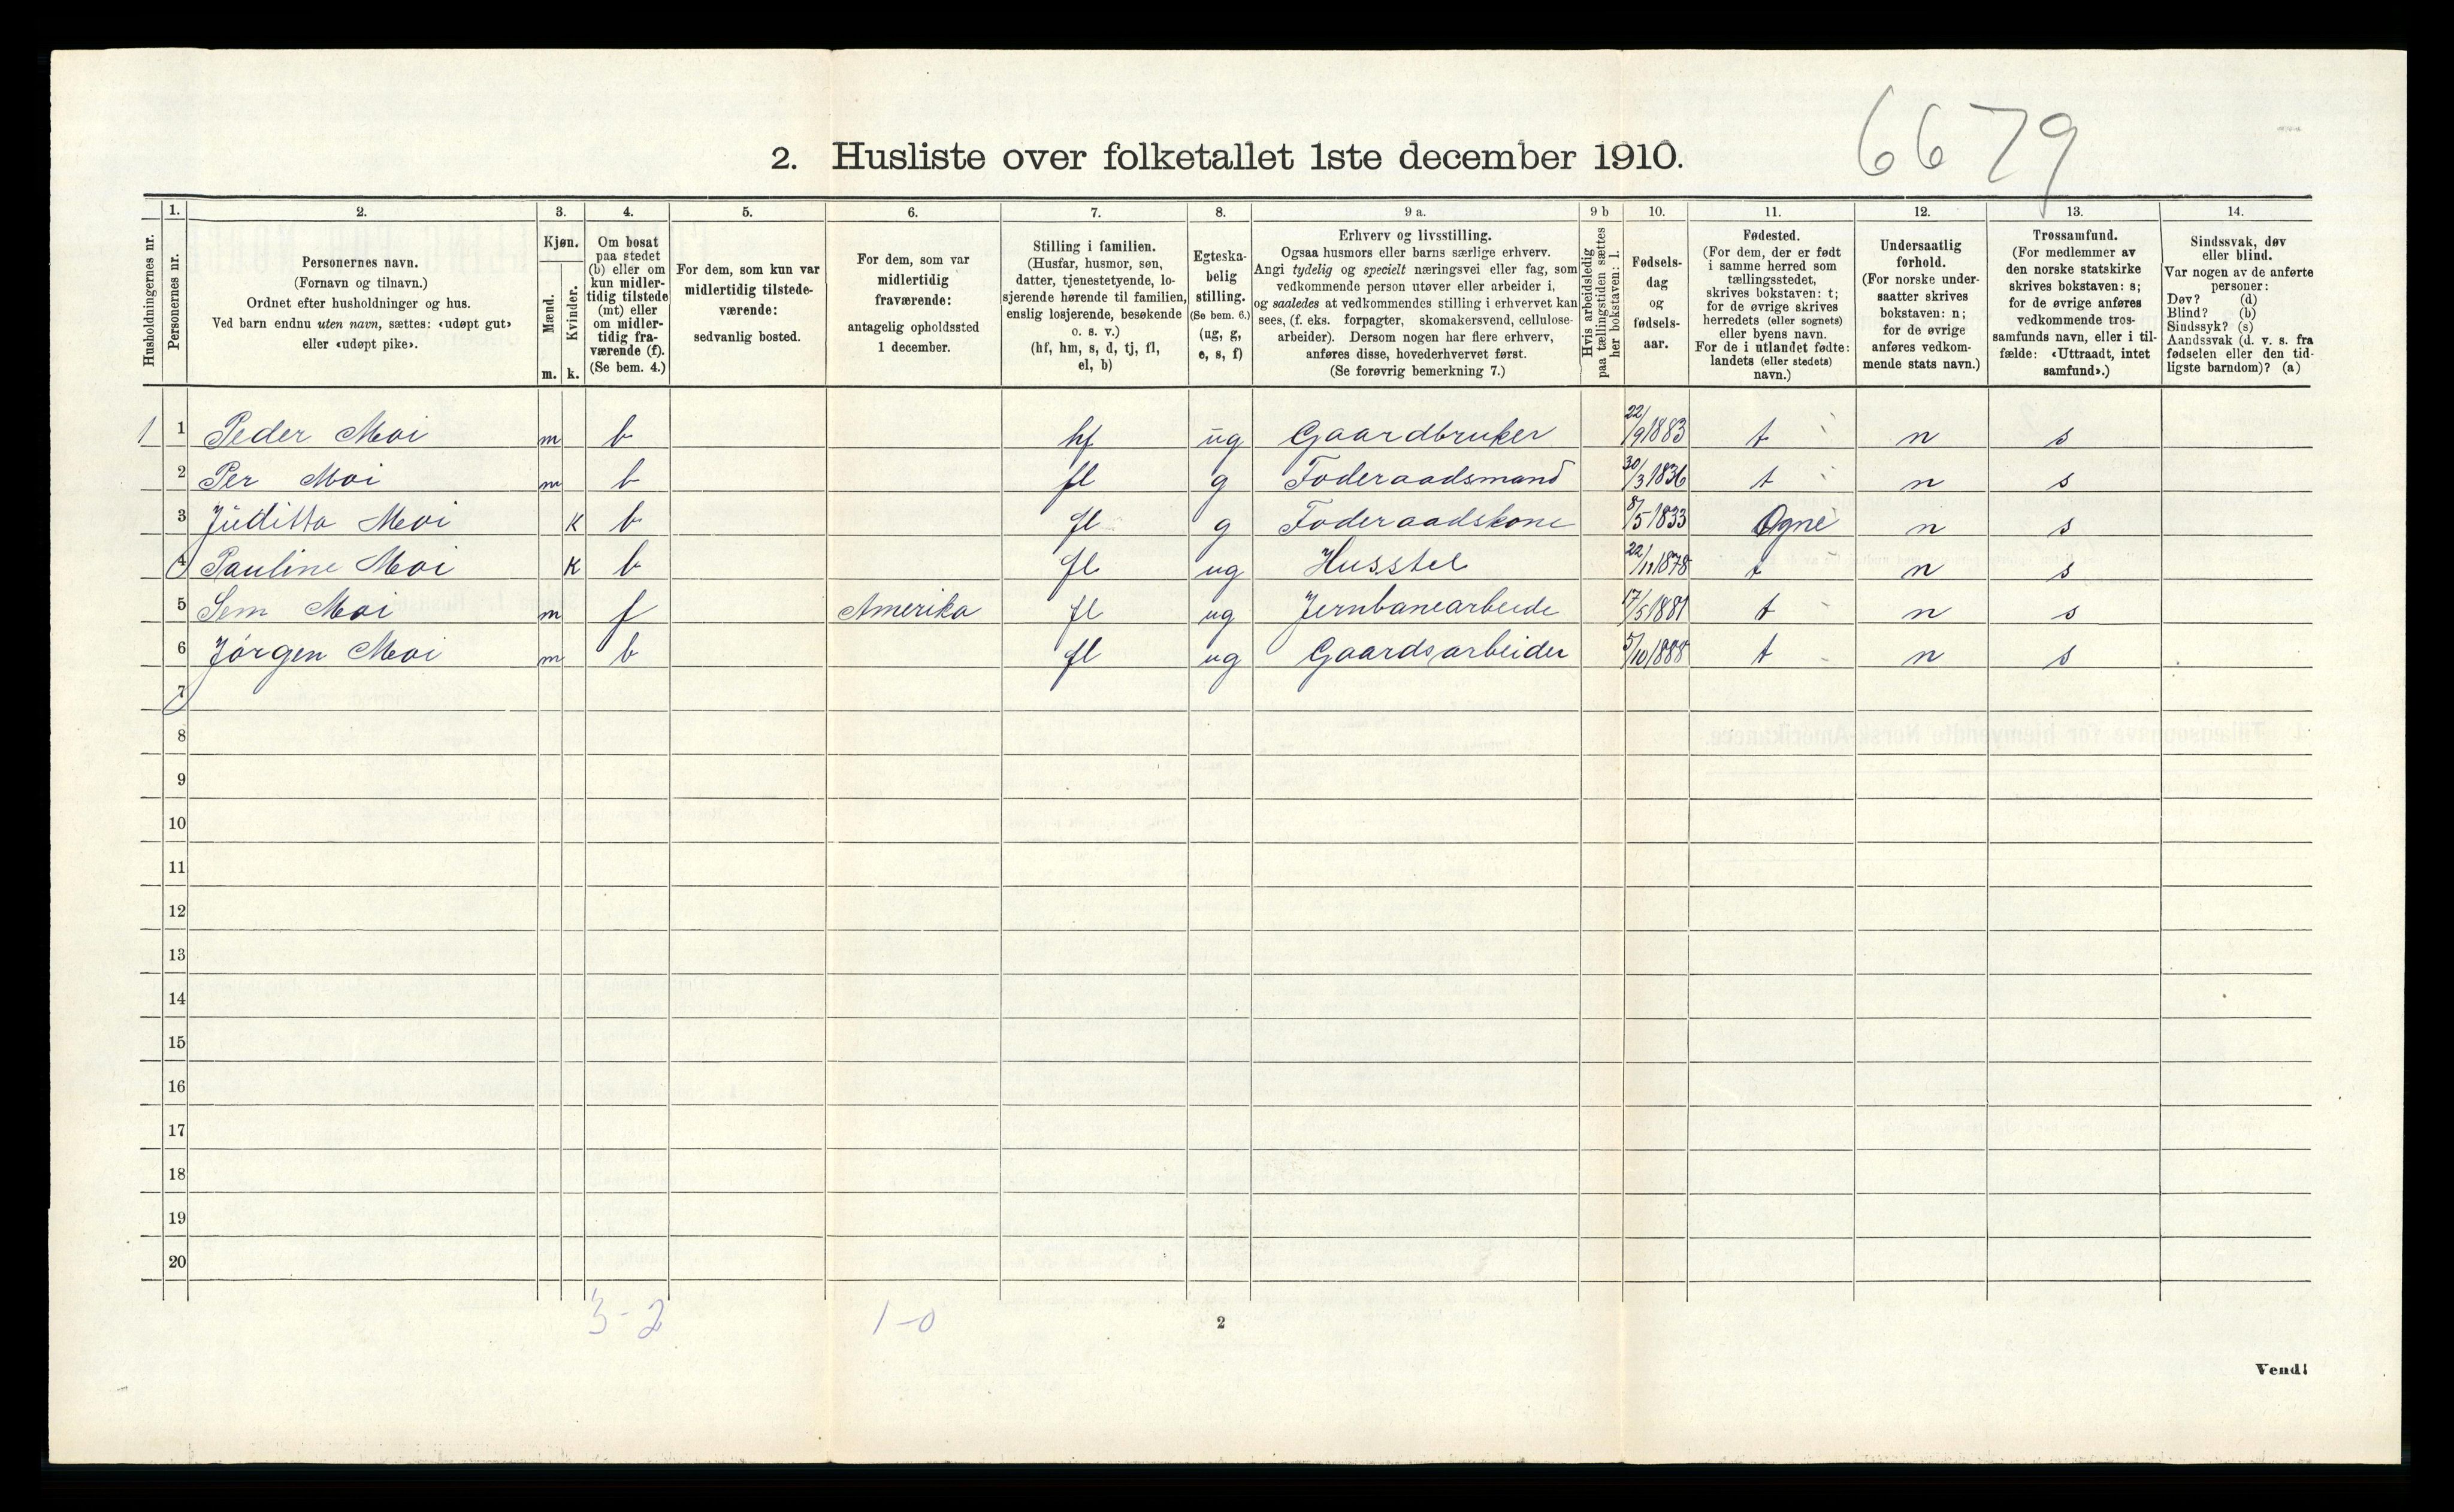 6679
2. Husliste over folketallet 1ste december 1910.
Husholdningernes nr.
1. Personernes nr.
2. Personernes navn. (Fornavn og tilnavn.) Ordnet efter husholdninger og hus. Ved barn endnu uten navn, sættes: «udøpt gut» eller «udøpt pike».
3. Kjøn. Mænd. m. Kvinder. k.
4. Om bosat paa stedet (b) eller om kun midlertidig tilstede (mt) eller om midlertidig fraværende (f). (Se bem. 4.)
5. For dem, som kun var midlertidig tilstedeværende: sedvanlig bosted.
6. For dem, som var midlertidig fraværende: antagelig opholdssted 1 december.
7. Stilling i familien. (Husfar, husmor, søn, datter, tjenestetyende, losjerende hørende til familien, enslig losjerende, besøkende o. s. v.) (hf, hm, s, d, tj, fl, el, b)
8. Egteskabelig stilling. (Se bem. 6.) (ug, g, e, s, f)
9 a. Erhverv og livsstilling. Ogsaa husmors eller barns særlige erhverv. Angi tydelig og specielt næringsvei eller fag, som vedkommende person utøver eller arbeider i, og saaledes at vedkommendes stilling i erhvervet kan sees, (f. eks. forpagter, skomakersvend, cellulosearbeider). Dersom nogen har flere erhverv, anføres disse, hovederhvervet først. (Se forøvrig bemerkning 7.)
9 b Hvis arbeidsledig paa tællingstiden sættes her bokstaven: l.
10. Fødselsdag og fødselsaar.
11. Fødested. (For dem, der er født i samme herred som tællingsstedet, skrives bokstaven: t; for de øvrige skrives herredets (eller sognets) eller byens navn. For de i utlandet fødte: landets (eller stedets) navn.)
12. Undersaatlig forhold. (For norske undersaatter skrives bokstaven: n; for de øvrige anføres vedkommende stats navn.)
13. Trossamfund. (For medlemmer av den norske statskirke skrives bokstaven: s; for de øvrige anføres vedkommende trossamfunds navn, eller i tilfælde: «Uttraadt, intet samfund».)
14. Sindssvak, døv eller blind. Var nogen av de anførte personer: Døv? (d) Blind? (b) Sindssyk? (s) Aandssvak (d. v. s. fra fødselen eller den tidligste barndom)? (a)
1 1 Peder Moi m b hf ug Gaardbruker 22/9 1883 t n s
2 Per Moi m b fl g Foderaadsmand 30/3 1836 t n s
3 Juditta Moi K b fl g Foderaadskone 8/5 1833 Ogne n s
4 Pauline Moi K b fl ug Husstel 22/11 1878 t n s
5 Sem Moi m f Amerika fl ug Jernbanearbeide 17/5 1881 t n s
6 Jørgen Moi m b fl ug Gaardsarbeider 5/10 1888 t n s
7
8
9
10
11
12
13
14
15
16
17
18
19
20
3-2 1-0
2
Vend!